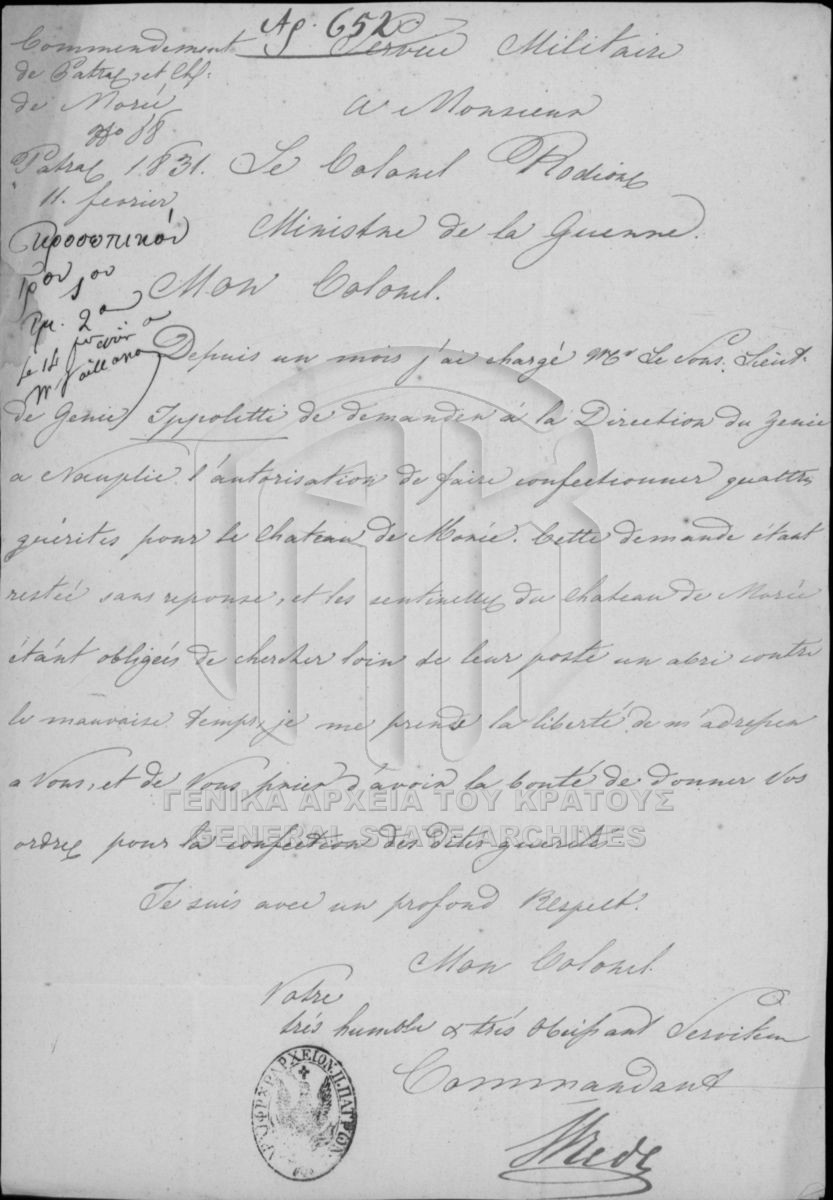 Αρ. 652
Commendement
de Patras et Chs.
de Morée
No 88
Patras 1831.
11. fevrier
Service Militaire
a Monsieur
Le Colonel Rodios
Ministre de la Guerre.
προσωπικόν
Γρον 1ον
Le 14
Mon Colonel.
Depuis un mois j'ai chargé Mr Le Sous. Lieut.
de Genie Ippoletti de demander á la Direction du genie
a Nauplie l'autorisation de faire confectionner quattre
guérites pour le Chateau de Morée. Cette demande étant
restée sans reponse, et les sentinelles du Chateau de Morée
étánt obligées de chercher loin de leur poste un abri contre
le mauvaise temps, je me prends la liberté de m'adresser
a Vous, et de Vous prier d'avoir la bonté de donner Vos
ordres pour la confection des dites guerites
Je suis avec un profond Respect.
Mon Colonel.
Votre
trés humble & trés Obeissant Serviteur
Commandant
ΓΕΝΙΚΑ ΑΡΧΕΙΑ ΤΟΥ ΚΡΑΤΟΥΣ
GENERAL STATE ARCHIVES